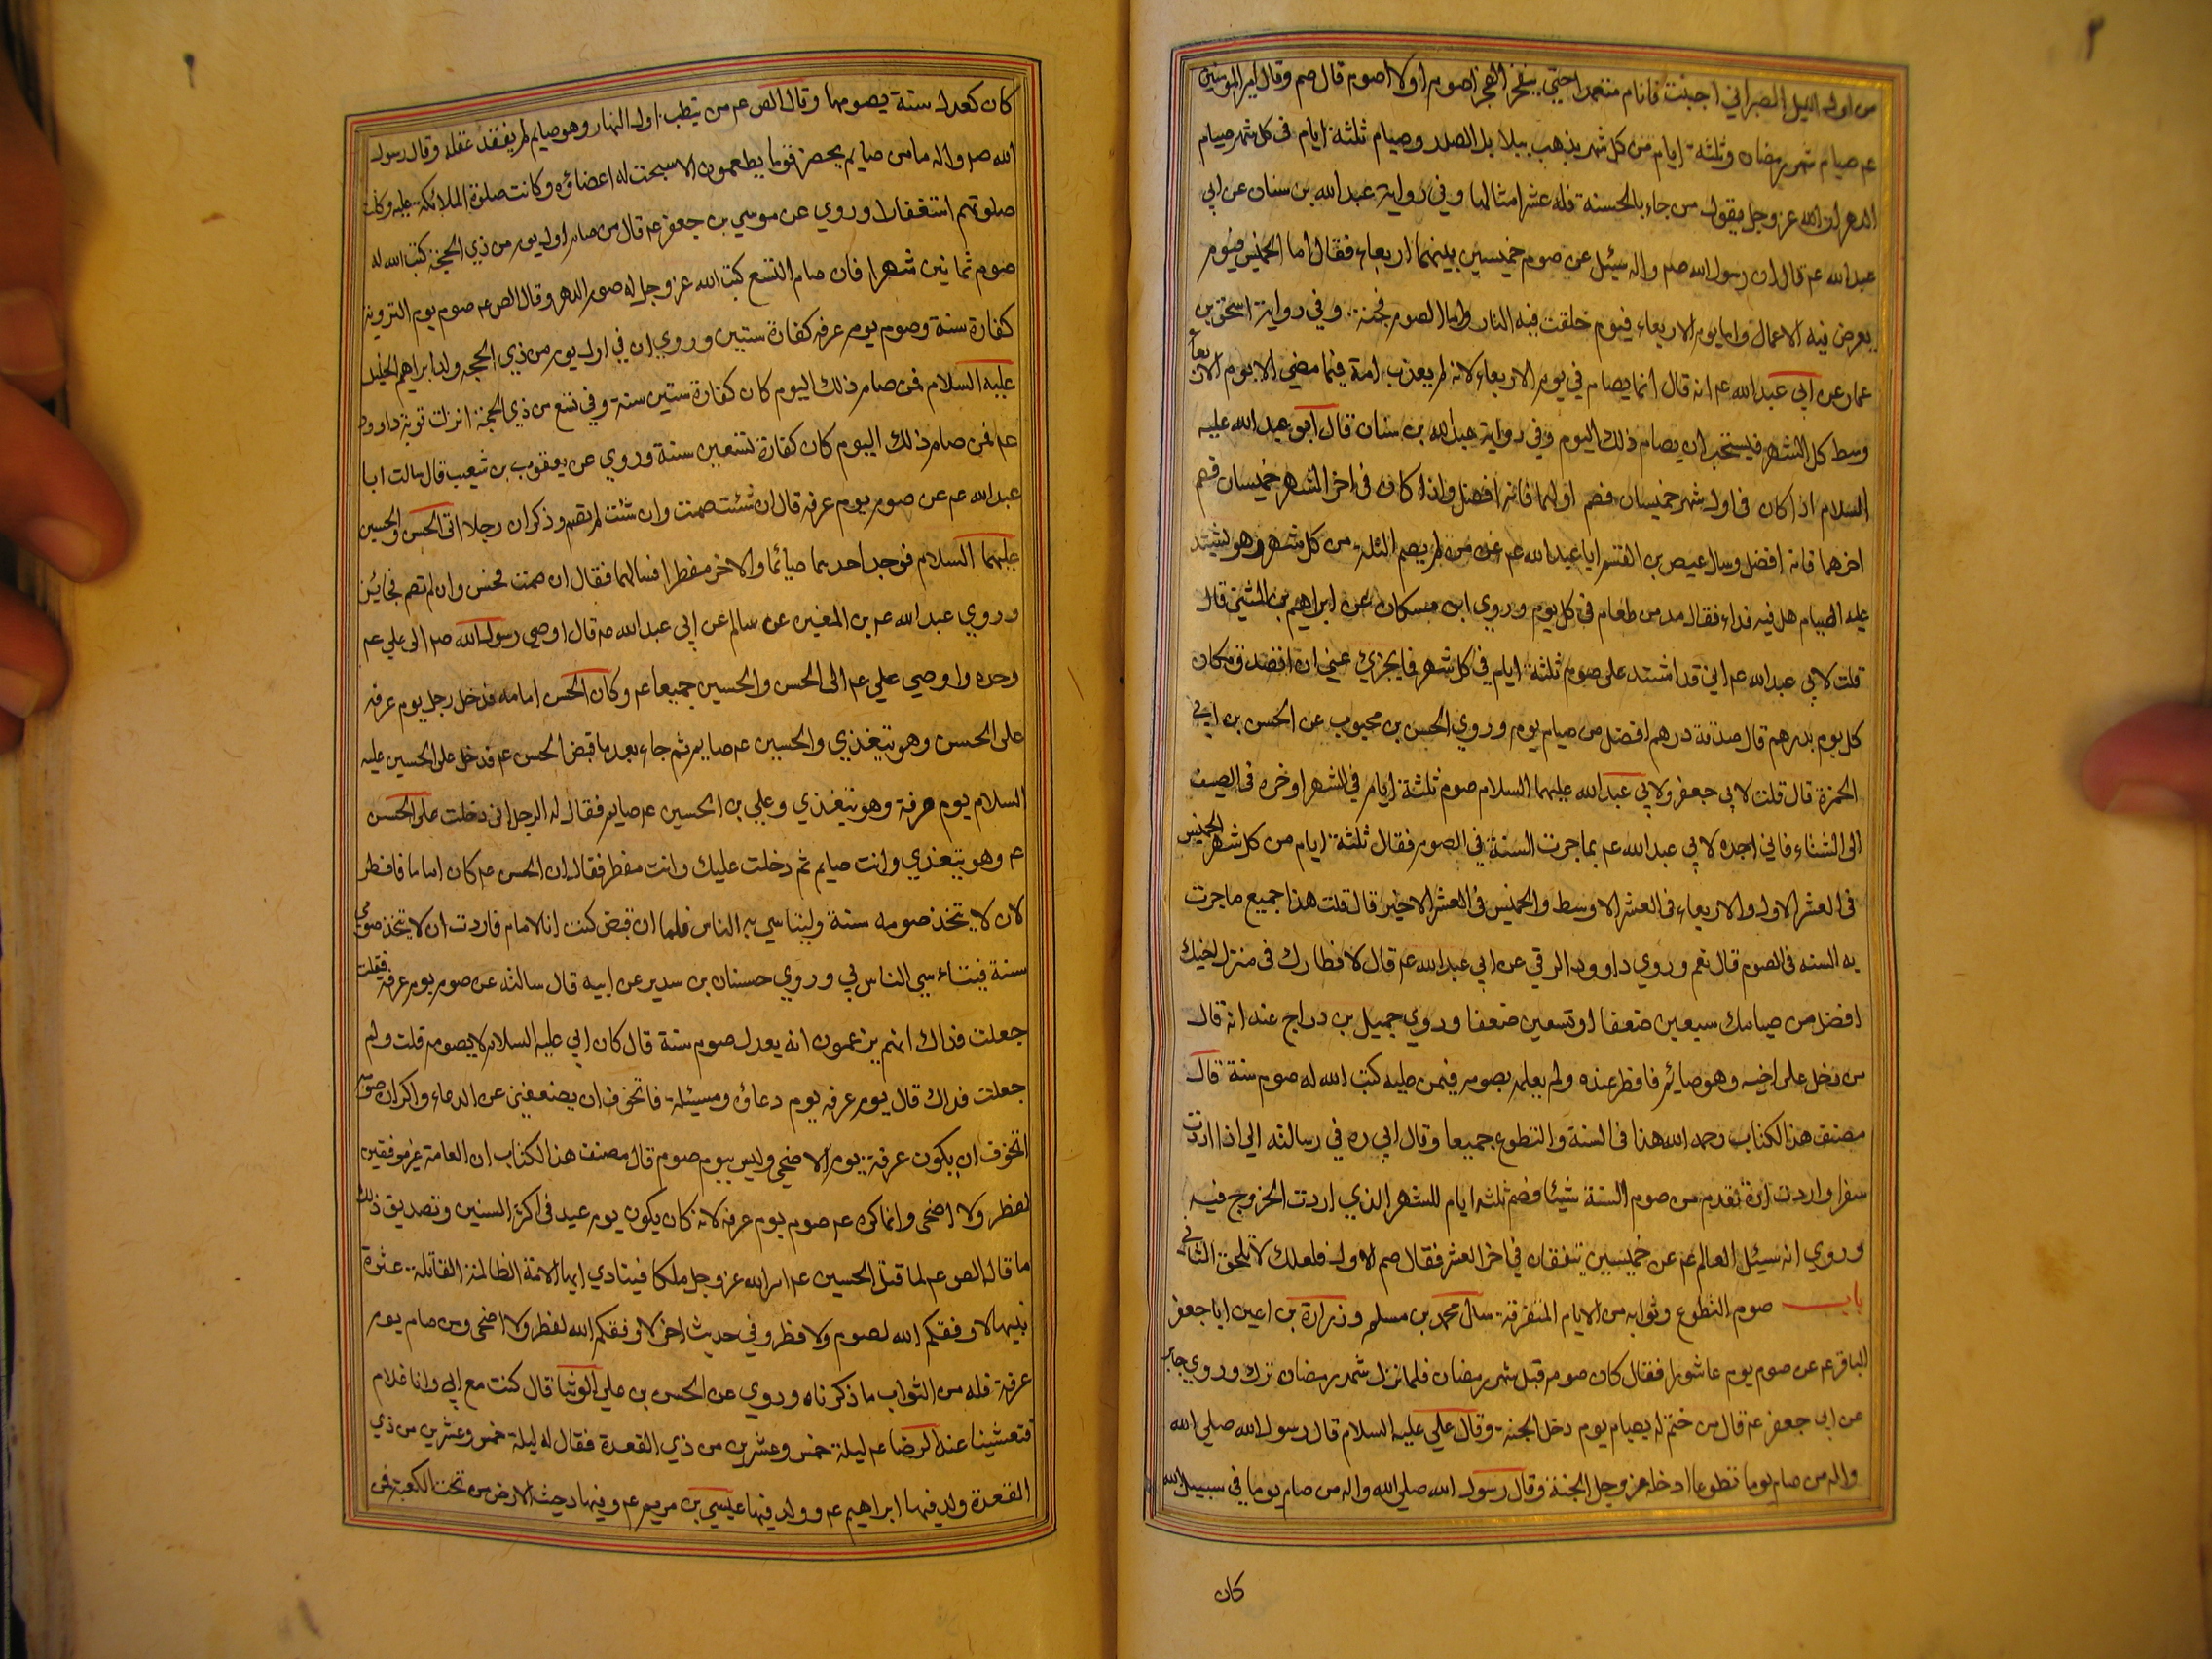 من اول الليل الصبر اني اجنبت فانام متعمدا حتى ينفجر الفجر اصوم او لا اصوم قال صم وقال امير المومنين
عم صيام شهر رمضان وثلثة ايام من كل شهر يذهب ببلابل الصدر وصيام ثلثة ايام فى كل شهر صيام
الدهر ان الله عز وجل يقول من جاء بالحسنة فله عشر امثالها وفي رواية عبد الله بن سنان عن ابي
عبد الله عم قال ان رسول الله صلم واله سيئل عن صوم خميسين بينهما اربعاء فقال اما الخميس فيوم
يعرض فيه الاعمال واما يوم الاربعاء فيوم خلقت فيه النار واما الصوم فجنة وفي رواية اسحق بن
عمار عن ابي عبد الله عم انه قال انما يصام في يوم الاربعاء لانه لم يعذب امة فيما مضى الا يوم الاربعا
وسط كل الشهر فيستحب ان يصام ذلك اليوم وفي رواية عبد الله بن سنان قال ابو عبد الله عليه
السلام اذا كان فى اول شهر خميسان فصم اولهما فانه افضل واذا كان فى اخر الشهر خميسان فصم
اخرهما فانه افضل وسال عيص بن القسم ابا عبد الله عم عن من لم يصم الثلة من كل شهر وهو يشتد
عليه الصيام هل فيه فداء فقال مد من طعام فى كل يوم وروي ابن مسكان عن ابراهيم بن المثنى قال
قلت لابي عبد الله عم اني قد اشتد على صوم ثلثة ايام في كل شهر فما يجزي عني ان اتصدق مكان
كل يوم بدرهم قال صدقة درهم افضل من صيام يوم وروي الحسن بن محبوب عن الحسن بن ابي
الحمزة قال قلت لابي جعفر ولابي عبد الله عليهما السلام صوم ثلثة ايام في الشهر اوخره فى الصيف
الى الشتاء فاني اجده لابي عبد الله عم بما جرت السنة في الصوم فقال ثلثة ايام من كل شهر الخميس
فى العشر الاول والاربعاء فى العشر الاوسط والخميس فى العشر الاخير قال قلت هذا جميع ما جرت
به السنه فى الصوم قال نعم وروي داوود الرقي عن ابي عبد الله عم قال لافطارك فى منزل اخيك
افضل من صيامك سبعين ضعفا او تسعين ضعفا وروي جميل بن دراج عنه انه قال
من دخل على اخيه وهو صائم فافطر عنده ولم يعلمه بصومه فيمن عليه كتب الله له صوم سنة قال
مصنف هذا الكتاب رحمه الله هذا فى السنة والتطوع جميعا وقال ابي ره في رسالته الي اذا اردت
سفرا واردت ان تقدم من صوم السنة شيئا فصم ثلثه ايام للشهر الذي اردت الخروج فيه
وروي انه سيئل العالم عم عن خميسين يتفقان في اخر العشر فقال صم الاول فلعلك لا تلحق الثاني
باب صوم التطوع وثوابه من الايام المتفرقة سال محمد بن مسلم وزرارة بن اعين ابا جعفر
الباقر عم عن صوم يوم عاشورا فقال كان صومه قبل شهر رمضان فلما نزل شهر رمضان ترك وروي جابر
عن ابي جعفر عم قال من ختم له بصيام يوم دخل الجنة وقال علي عليه السلام قال رسول الله صلي الله
واله من صام يوما تطوعا ادخله عز وجل الجنة وقال رسول الله صلي الله واله من صام يوما في سبيل الله
كان
كان كعدل سنة يصومها وقال الص عم من تطيب اول النهار وهو صايم لم يفتقد عقله وقال رسول
الله صلم واله ما من صايم يحضر قوما يطعمون الا سبحت له اعضاؤه وكانت صلوة الملائكة عليه وكانت
صلوتهم استغفارا وروي عن موسي بن جعفر عم قال من صام اول يوم من ذي الحجة كتب الله له
صوم ثمانين شهرا فان صام التسع كتب الله عز وجل له صوم الدهر وقال الص عم صوم يوم التروية
كفارة سنة وصوم يوم عرفه كفارة سنتين وروي ان في اول يوم من ذي الحجه ولد ابراهيم الخليل
عليه السلام فمن صام ذلك اليوم كان كفارة ستين سنة وفي تسع من ذي الحجة انزلت توبة داوود
عم فمن صام ذلك اليوم كان كفارة تسعين سنة وروي عن يعقوب بن شعيب قال سالت ابا
عبد الله عم عن صوم يوم عرفه قال ان شئت صمت وان شئت لم تصم وذكر ان رجلا اتى الحسن والحسين
عليهما السلام فوجد احدهما صائما والاخر مفطرا فسالهما فقال ان صمت فحسن وان لم تصم فجايز
وروي عبد الله عم بن المغيره عن سالم عن ابي عبد الله عم قال اوصي رسول الله صلم الى علي عم
وحده واوصي علي عم الى الحسن والحسين جميعا عم وكان الحسن امامه فدخل رجل يوم عرفه
على الحسن وهو يتغذي والحسين عم صايم ثم جاء بعد ما قبض الحسن عم فدخل على الحسين عليه
السلام يوم عرفة وهو يتغذي وعلي بن الحسين عم صايم فقال له الرجل اني دخلت على الحسن
عم وهو يتغذي وانت صايم ثم دخلت عليك وانت مفطر فقال ان الحسن عم كان اماما فافطر
لان لا يتخذ صومه سنة وليتاسي به الناس فلما ان قبض كنت انا الامام فاردت ان لا يتخذ صومي
سنة فيتاءسي الناس بي وروي حسنان بن سدير عن ابيه قال سالته عن صوم يوم عرفه فقلت
جعلت فداك انهم يزعمون انه يعدل صوم سنة قال كان ابي عليه السلام لا يصومه قلت ولم
جعلت فداك قال يوم عرفه يوم دعاؤ ومسيئلة فاتخوف ان يضعفني عن الدعاء واكره ان صومه
اتخوف ان يكون عرفة يوم الاضحى وليس بيوم صوم قال مصنف هذا الكتاب ان العامة غير موفقين
لفطر ولا اضحى وانما كره عم صوم يوم عرفه لانه كان يكون يوم عيد فى اكثر السنين وتصديق ذلك
ما قاله الص عم لما قتل الحسين عم امر الله عز وجل ملكا فينادي ايها الامة الظالمة القاتلة عترة
نبيها لا وفقكم الله لصوم ولا فطر وفي حديث اخر لا وفقكم الله لفطر ولا اضحى ومن صام يوم
عرفة فله من الثواب ما ذكرناه وروي عن الحسن بن علي الوشا قال كنت مع ابي وانا غلام
فتعشينا عند الرضا عم ليلة خمس وعشرين من ذي القعدة فقال له ليلة خمس وعشرين من ذي
القعدة ولد فيها ابراهيم عم وولد فيها عيسي بن مريم عم وفيها دحيت الارض من تحت الكعبة فمن